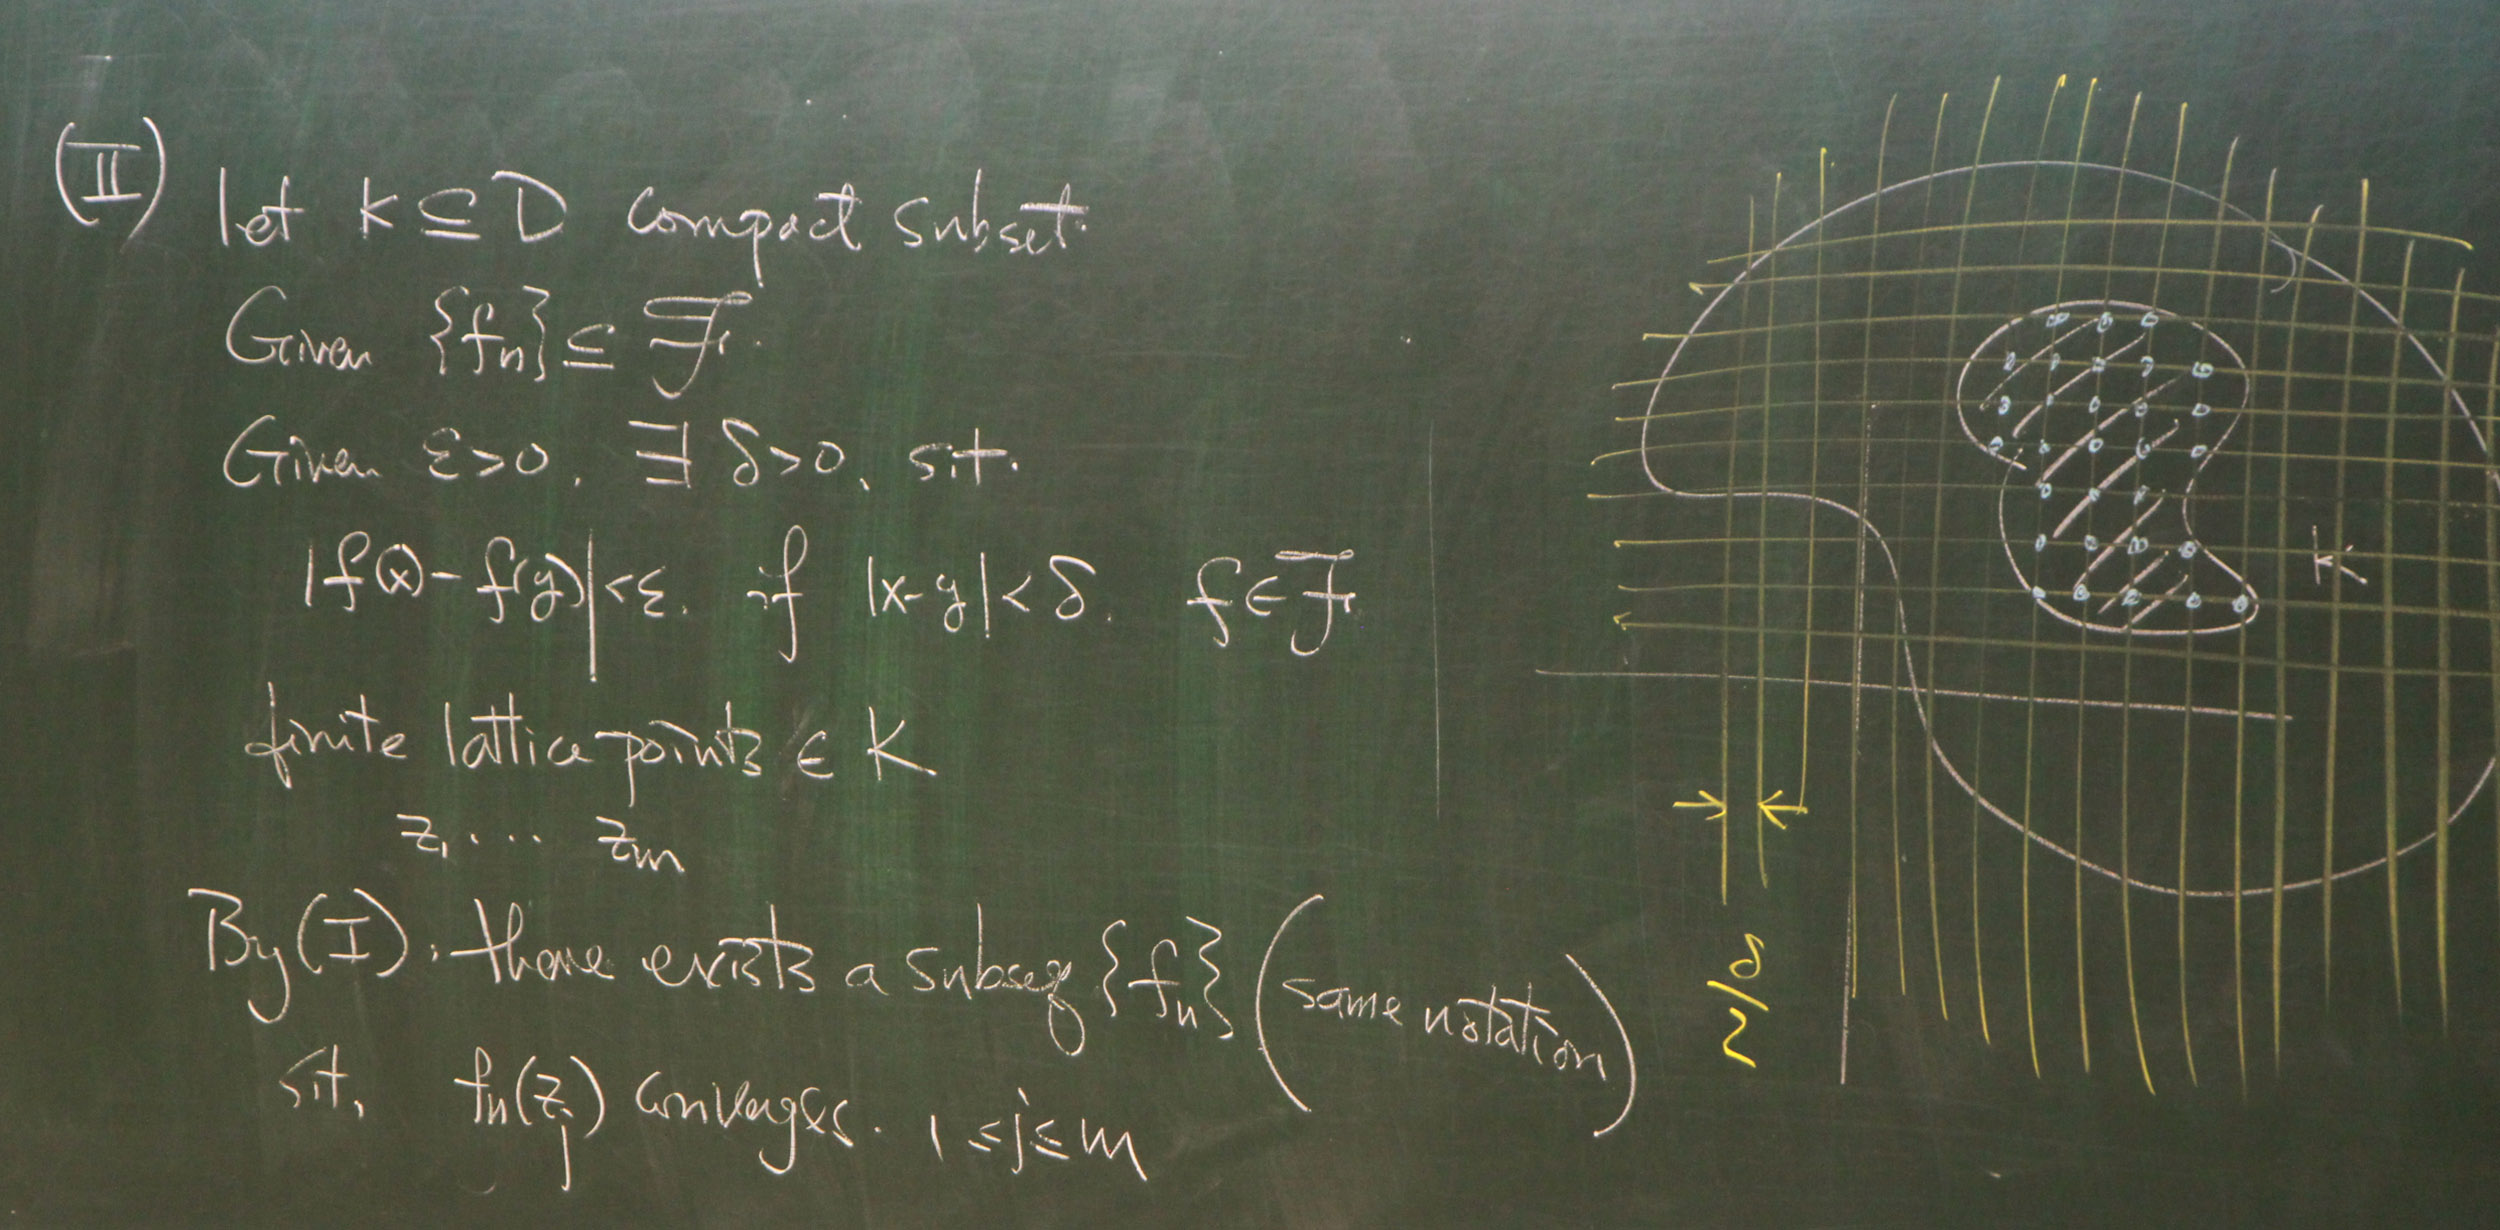 (II) Let K ⊆ D compact subset.
Given {fn} ⊆ ℱ.
Given ε>0, ∃ δ>0, s.t.
|f(x)-f(y)|<ε. if |x-y|<δ. f∈ℱ.
finite lattice points ∈ K
z1 ... zm
By (I). there exists a subseq {fn} (same notation)
s.t. fn(zj) converges. 1≤j≤m
K
δ/2